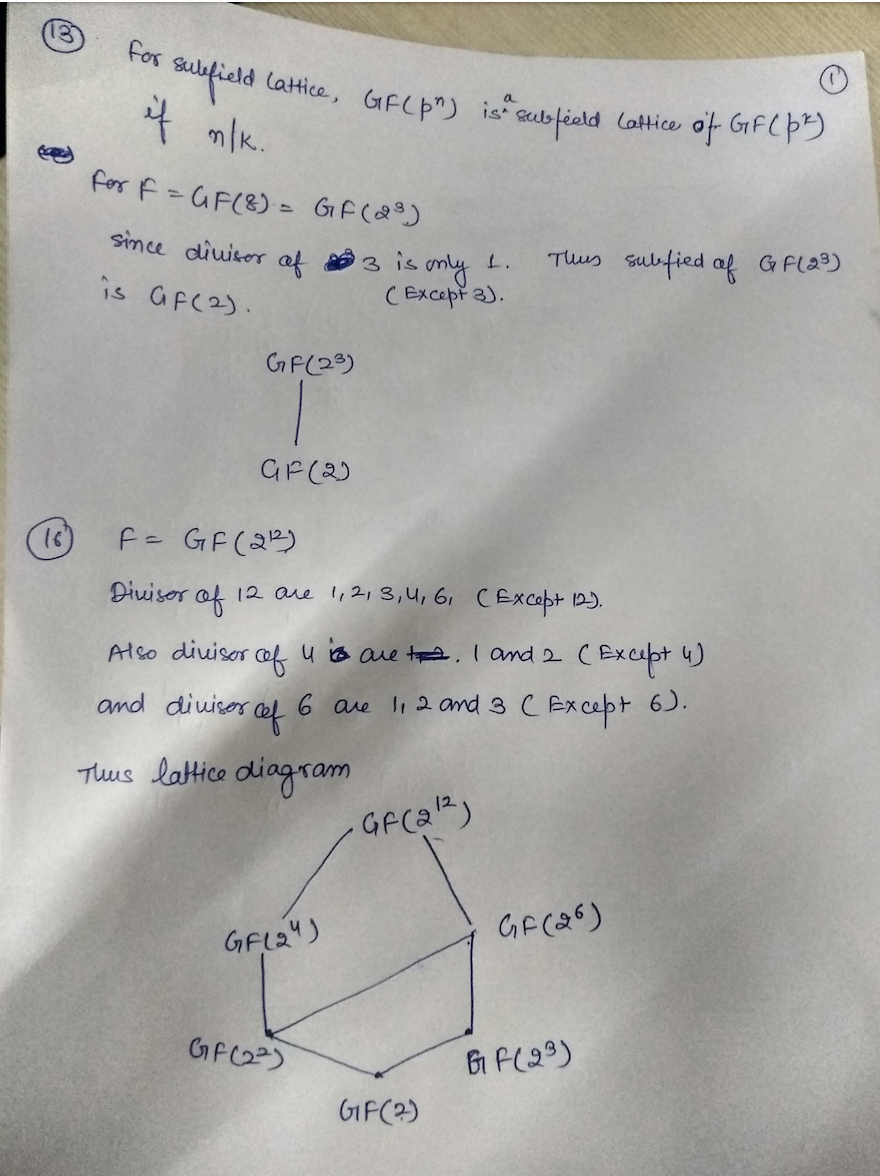 13
①
For subfield lattice, GF(pⁿ) is a subfield lattice of GF(pᵏ)
if n/k.
for F = GF(8) = GF(2³)
since divisor of 3 is only 1. Thus subfied of GF(2³)
is GF(2). (Except 3).
GF(2³)
GF(2)
16 F = GF(2¹²)
Divisor of 12 are 1, 2, 3, 4, 6, (Except 12).
Also divisor of 4 are 1 and 2 (Except 4)
and divisor of 6 are 1, 2 and 3 (Except 6).
Thus lattice diagram
GF(2¹²)
GF(2⁴) GF(2⁶)
GF(2²) GF(2³)
GF(2)